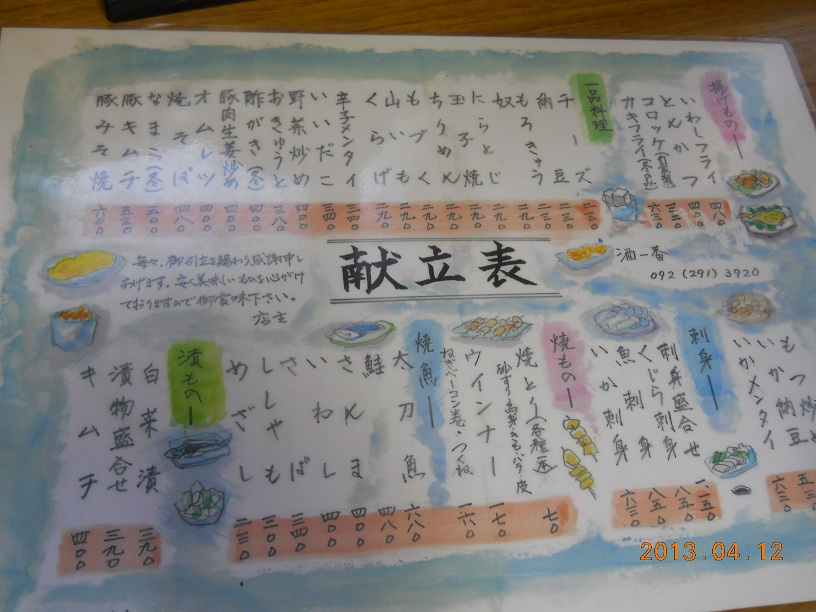 揚げもの
いわしフライ 四八〇
とんかつ 四〇〇
コロッケ(自家製) 三五〇
カキフライ(冬のみ) 六三〇
一品料理
チーズ 二三〇
納豆 二三〇
もろきゅう 二三〇
奴 二九〇
にらとじ 二九〇
玉子焼 二九〇
ちりめん 二九〇
もづく 二九〇
山いも 二九〇
くらげ 二九〇
辛子メンタイ 三四〇
いいだこ 三四〇
野菜炒め 四〇〇
おきゅうと
酢がき(冬)
豚肉生姜炒め
オムレツ
焼そば 四八〇
なまこ(冬) 五〇〇
豚キムチ 五三〇
豚みそ焼 六〇〇
献立表
酒一番
092(291)3920
毎々、御引立を賜わり感謝申し
あげます。安く美味しいものを心がけ
ておりますので御賞味下さい。
店主
もつ炒め 五三〇
いか納豆 六三〇
いかメンタイ 六三〇
刺身
刺身盛合せ 一一五〇
くじら刺身 八五〇
魚刺身 八五〇
いか刺身 六三〇
焼もの
焼とり(各種一本) 七〇
砂ずり・鳥身・きも・バラ・皮
ウインナー 一七〇
ねぎベーコン巻・つくね 一六〇
焼魚
太刀魚 六八〇
鮭 四八〇
さんま 四〇〇
いわし 四〇〇
さば 三四〇
ししゃも 三〇〇
めざし 二三〇
漬もの
白菜漬 三九〇
漬物盛合せ 三九〇
キムチ 四〇〇
2013.04.12